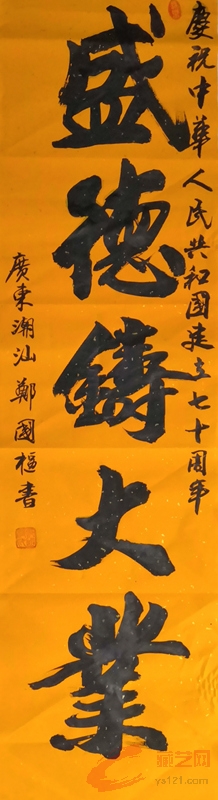 慶祝中華人民共和國建立七十周年
盛德鑄大業
廣東潮汕鄭國樞書
藏艺网
ys121.com